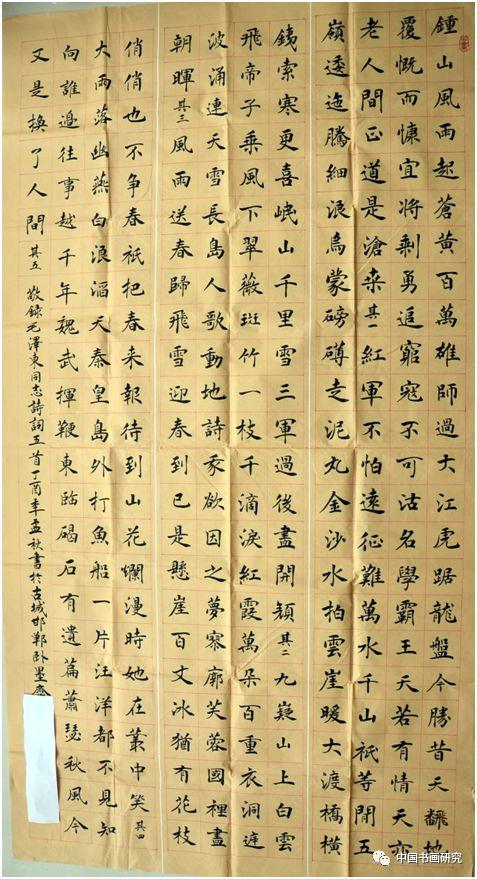 鍾山風雨起蒼黄百萬雄師過大江虎踞龍盤今勝昔天飜地
覆慨而慷宜將剩勇追窮寇不可沽名學霸王天若有情天亦
老人間正道是滄桑其一紅軍不怕遠征難萬水千山祇等閒五
嶺逶迤騰細浪烏蒙磅礴走泥丸金沙水拍雲崖暖大渡橋橫
銕索寒更喜岷山千里雪三軍過後盡開顏其二九嶷山上白雲
飛帝子乘風下翠薇斑竹一枝千滴淚紅霞萬朵百重衣洞庭
波涌連天雪長島人歌動地詩我欲因之夢寥廓芙蓉國裡盡
朝暉其三風雨送春歸飛雪迎春到已是懸崖百丈冰猶有花枝
俏俏也不争春祇把春来報待到山花爛漫時她在叢中笑其四
大雨落幽燕白浪滔天秦皇島外打魚船一片汪洋都不見知
向誰邊往事越千年魏武揮鞭東臨碣石有遺篇蕭瑟秋風今
又是換了人間其五敬錄毛澤東同志詩詞五首丁酉年孟秋書於古城邯鄲卧墨齋
中国书画研究